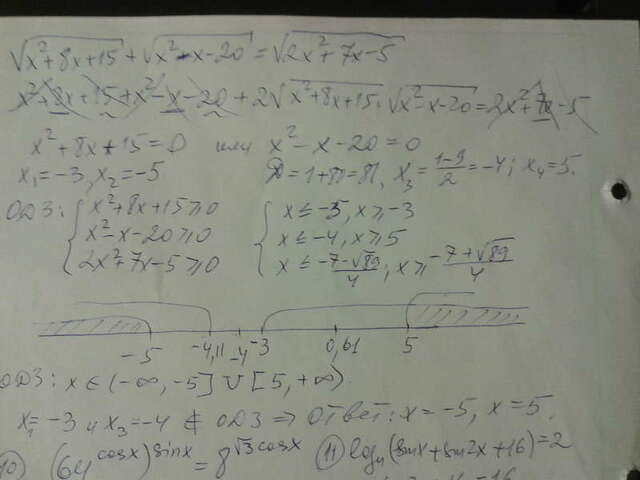 √(x²+8x+15) + √(x²-x-20) = √(2x²+7x-5)
x²+8x+15+x²-x-20+2√(x²+8x+15)·√(x²-x-20)=2x²+7x-5
x²+8x+15=0 или x²-x-20=0
x₁=-3, x₂=-5 D=1+80=81, x₃=(1-9)/2=-4; x₄=5.
ОДЗ: { x²+8x+15≥0 { x≤-5, x≥-3
x²-x-20≥0 x≤-4, x≥5
2x²+7x-5≥0 x≤(-7-√89)/4; x≥(-7+√89)/4
-5 -4,11 -4 -3 0,61 5
ОДЗ: x∈(-∞,-5]∪[5,+∞)
x₁=-3 и x₃=-4 ∉ ОДЗ ⇒ Ответ: x=-5, x=5.
10 (64^cosx)^sinx = 8^√3cosx 11 log₄(sinx+sin2x+16)=2